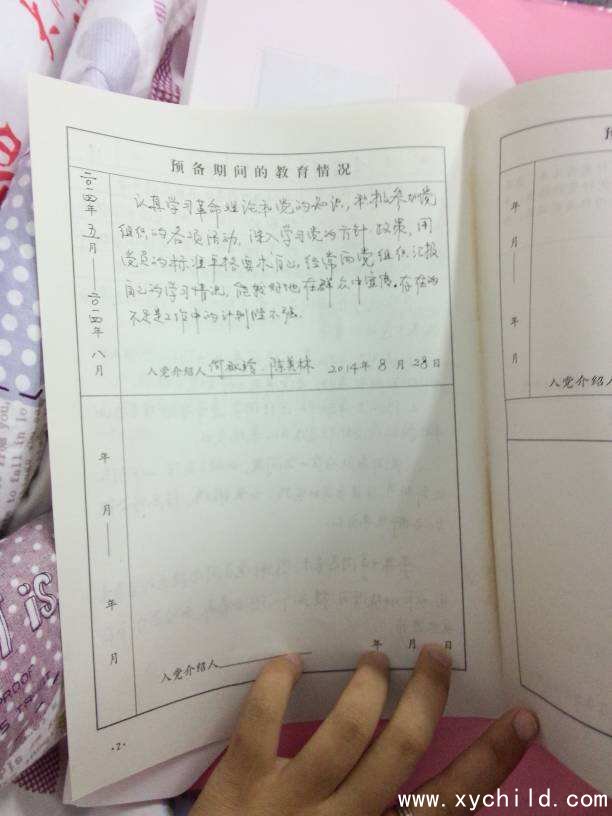 预备期间的教育情况
二〇一四年五月
二〇一四年八月
认真学习革命理论和党的知识，积极参加党
组织的各项活动，深入学习党的方针、政策，用
党员的标准严格要求自己，经常向党组织汇报
自己的学习情况，能较好地在群众中宣传。存在的
不足是工作中的计划性不强.
入党介绍人 陈美林 2014年8月28日
年
月
年
月
入党介绍人
年 月 日
·2·
预
年
月
年
月
入党介绍人
is
www.xychild.com